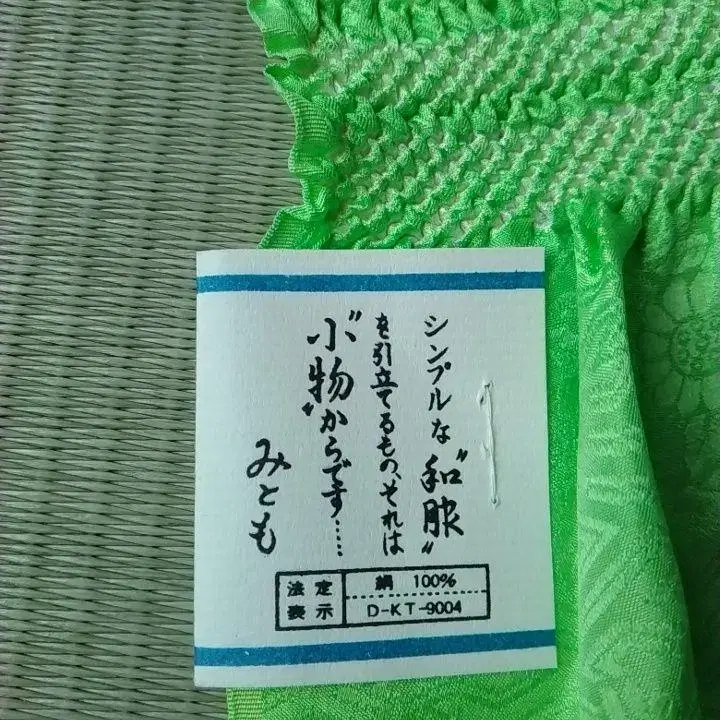 シンプルな“和服”
を引立てるもの、それは
“小物”からです……
みとも
法定
表示
絹 100%
D-KT-9004